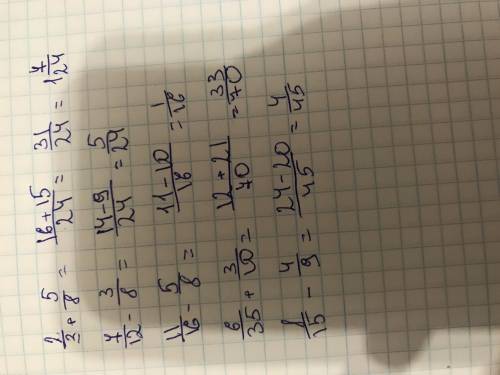 2/3 + 5/8 = 16+15/24 = 31/24 = 1 7/24
7/12 - 3/8 = 14-9/24 = 5/24
11/16 - 5/8 = 11-10/16 = 1/16
6/35 + 3/10 = 12+21/70 = 33/70
8/15 - 4/9 = 24-20/45 = 4/45